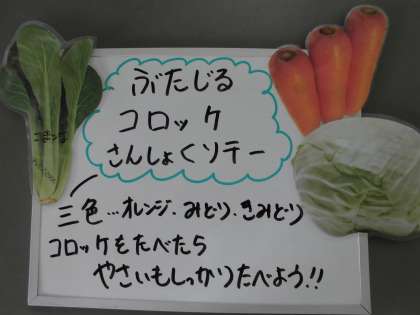 ぶたじる
コロッケ
さんしょくソテー
三色…オレンジ.みどり.きみどり
コロッケをたべたら
やさいもしっかりたべよう!!